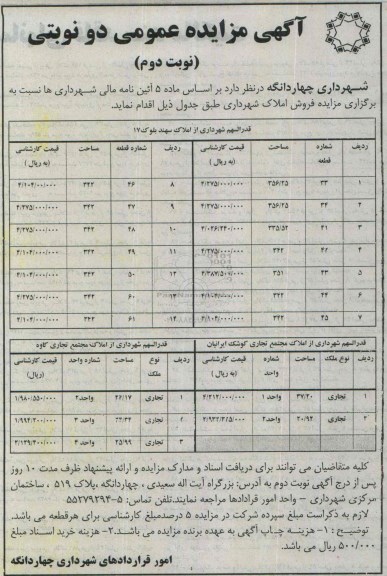 آگهی مزایده عمومی دو نوبتی
(نوبت دوم)
شهرداری چهاردانگه درنظر دارد بر اساس ماده ۵ آئین نامه مالی شهرداری ها نسبت به
برگزاری مزایده فروش املاک شهرداری طبق جدول ذیل اقدام نماید.
قدرالسهم شهرداری از املاک سهند بلوک۱۷
ردیف شماره قطعه مساحت قیمت کارشناسی (به ریال) ردیف شماره قطعه مساحت قیمت کارشناسی (به ریال)
۱ ۳۳ ۳۵۶/۲۵ ۴/۲۷۵/۰۰۰/۰۰۰ ۸ ۴۶ ۳۴۲ ۴/۱۰۴/۰۰۰/۰۰۰
۲ ۳۴ ۳۵۶/۲۵ ۴/۲۷۵/۰۰۰/۰۰۰ ۹ ۴۷ ۳۴۲ ۴/۲۷۵/۰۰۰/۰۰۰
۳ ۴۱ ۱۰ ۴۸ ۳۴۲ ۴/۲۷۵/۰۰۰/۰۰۰
۴ ۴۲ ۳۴۲ ۱۱ ۴۹ ۳۴۲ ۴/۱۰۴/۰۰۰/۰۰۰
۵ ۴۳ ۳۵۱ ۴/۳۸۷/۵۰۰/۰۰۰ ۱۲ ۵۰ ۳۴۲ ۴/۱۰۴/۰۰۰/۰۰۰
۶ ۴۴ ۳۴۲ ۴/۱۰۴/۰۰۰/۰۰۰ ۱۳ ۶۰ ۳۴۲ ۴/۲۷۵/۰۰۰/۰۰۰
۷ ۴۵ ۳۴۲ ۴/۱۰۴/۰۰۰/۰۰۰ ۱۴ ۶۱ ۳۴۲ ۴/۱۰۴/۰۰۰/۰۰۰
قدرالسهم شهرداری از املاک مجتمع تجاری کوشک ایرانیان قدرالسهم شهرداری از املاک مجتمع تجاری کاوه
ردیف نوع ملک مساحت شماره واحد قیمت کارشناسی (به ریال) ردیف نوع ملک مساحت شماره واحد قیمت کارشناسی (ریال)
۱ تجاری ۳۷/۲۰ واحد ۱ ۱ تجاری ۲۶/۱۷ واحد۲ ۱/۹۸۰/۵۵۰/۰۰۰
۲ تجاری ۲۰/۹۴ واحد۲ ۲ تجاری واحد ۳
۳ تجاری ۲۵/۹۹ واحد ۴
کلیه متقاضیان می توانند برای دریافت اسناد و مدارک مزایده و ارائه پیشنهاد ظرف مدت ۱۰ روز
پس از درج آگهی نوبت دوم به آدرس: بزرگراه آیت اله سعیدی ، چهاردانگه ،پلاک ۵۱۹ ، ساختمان
مرکزی شهرداری – واحد امور قرادادها مراجعه نمایند.تلفن تماس: ۵-۵۵۲۷۹۲۹۴
لازم به ذکراست مبلغ سپرده شرکت در مزایده ۵ درصدمبلغ کارشناسی برای هرقطعه می باشد.
توضیح : ۱- هزینه چاپ آگهی به عهده برنده مزایده می باشد.۲- هزینه خرید اسناد مبلغ
۵۰۰/۰۰۰ ریال می باشد.
امور قراردادهای شهرداری چهاردانگه